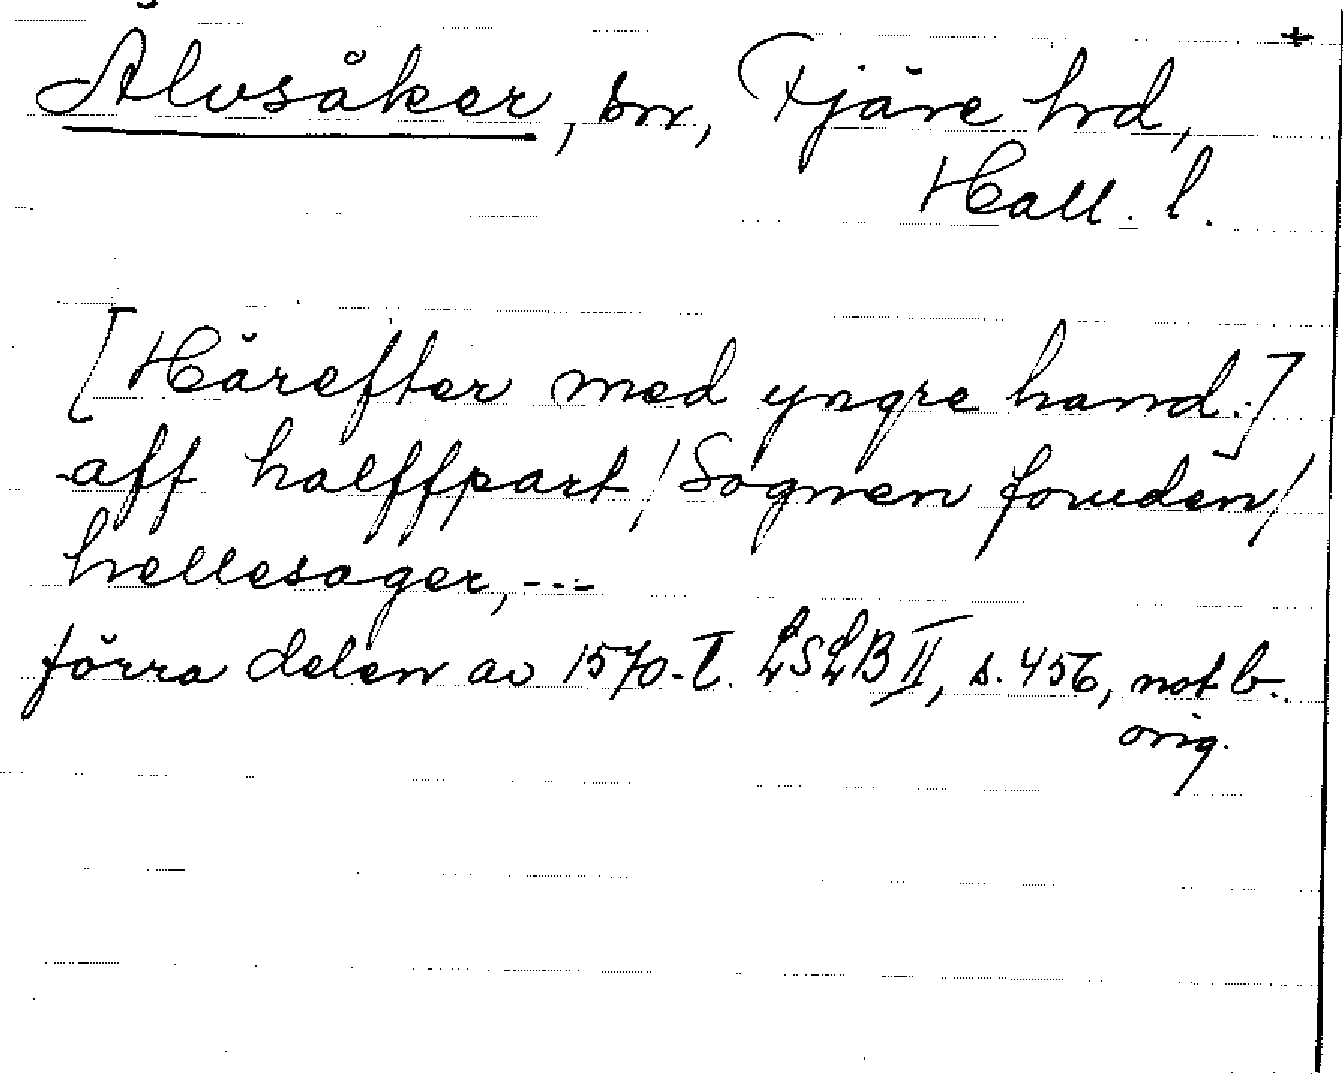 Älvsåker, sn, Fjäre hd, +
Hall. l.
[Härefter med yngre hand:]
aff halffpart / Sognen foruden /
hellesager, ---
förra delen av 1570-t. LSLB II, s. 456, not b.
orig.